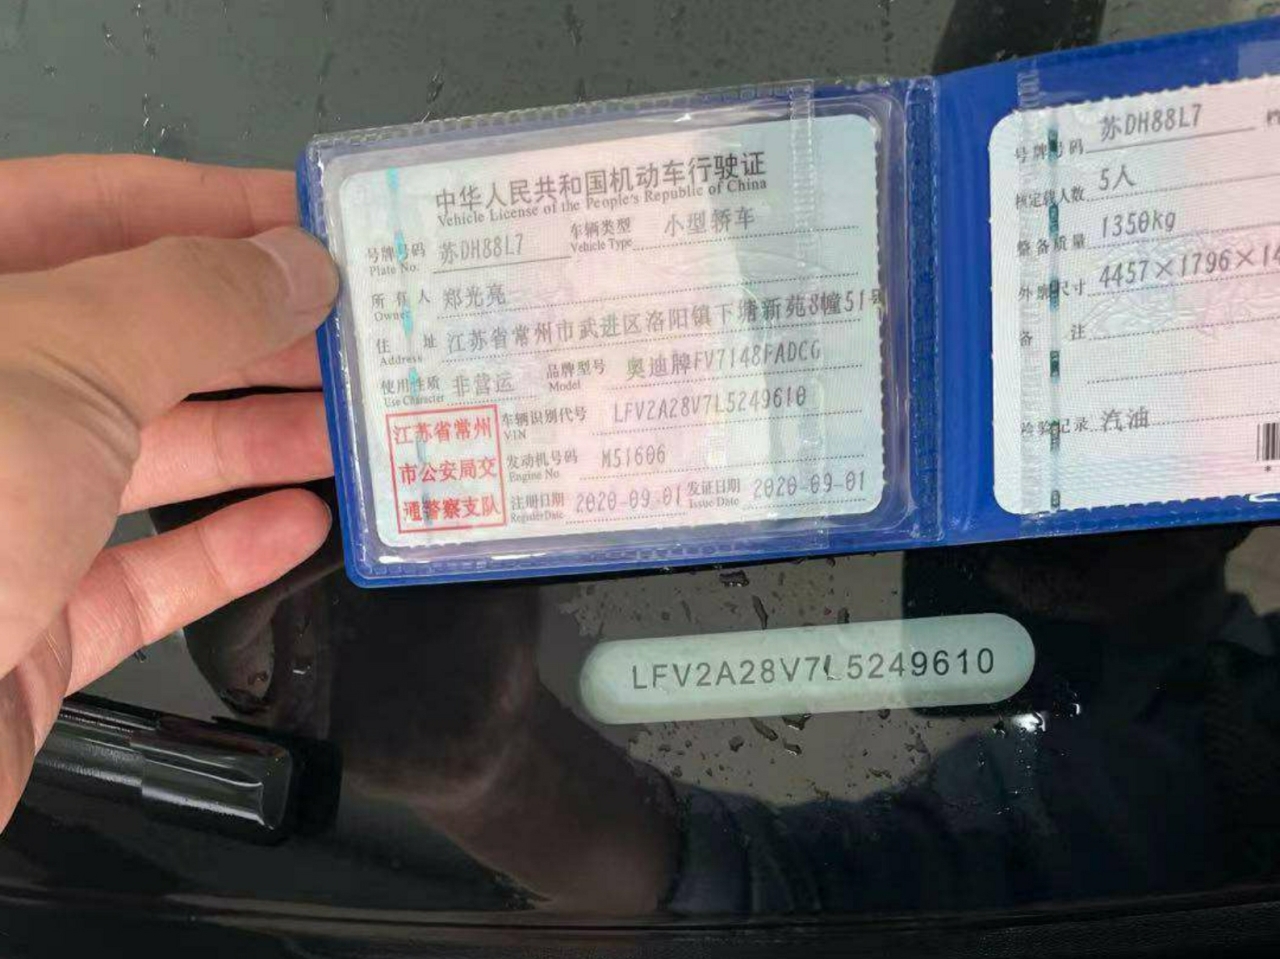 中华人民共和国机动车行驶证
Vehicle License of the People's Republic of China
号牌号码 苏DH88L7 车辆类型 小型轿车
Plate No. Vehicle Type
所有人 郑光亮
Owner
住址 江苏省常州市武进区洛阳镇下塘新苑8幢51号
Address
使用性质 非营运 品牌型号 奥迪牌FV7148FADCG
Use Character Model
江苏省常州
市公安局交
通警察支队
车辆识别代号 LFV2A28V7L5249610
VIN
发动机号码 M51606
Engine No
注册日期 2020-09-01 发证日期 2020-09-01
Register Date Issue Date
号牌号码 苏DH88L7
核定载人数 5人
整备质量 1350kg
外廓尺寸 4457×1796×14
备注
检验记录 汽油
LFV2A28V7L5249610